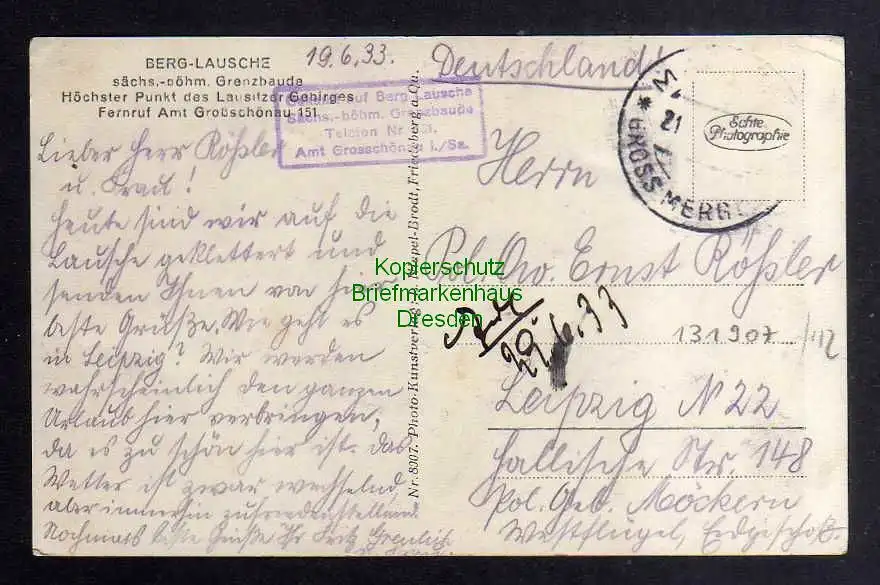 BERG-LAUSCHE
sächs.-böhm. Grenzbaude
Höchster Punkt des Lausitzer Gebirges
Fernruf Amt Großschönau 151
19.6.33.
Deutschland!
auf Berg Lausche
Sächs.-böhm. Grenzbaude
Telefon Nr. 151.
Amt Grosschönau i./Sa.
21
* GROSS MERGT
Echte
Photographie
Lieber Herr Rößler
u. Frau!
Heute sind wir auf die
Lausche geklettert und
senden Ihnen von hier
beste Grüße. Wie geht es
in Leipzig? Wir werden
wahrscheinlich den ganzen
Urlaub hier verbringen,
da es zu schön hier ist. Das
Wetter ist zwar wechselnd,
aber immerhin zufriedenstellend.
Nochmals beste Grüße Ihr Fritz
Nr. 8007. Photo-Kunstverlag Brodt, Friedeberg a. Qu.
Herrn
Pol. Ow. Ernst Rößler
29.6.33
131907/112
Leipzig N 22
Hallische Str. 148
Pol. Geb. Möckern
Westflügel, Erdgeschoß.
Kopierschutz
Briefmarkenhaus
Dresden